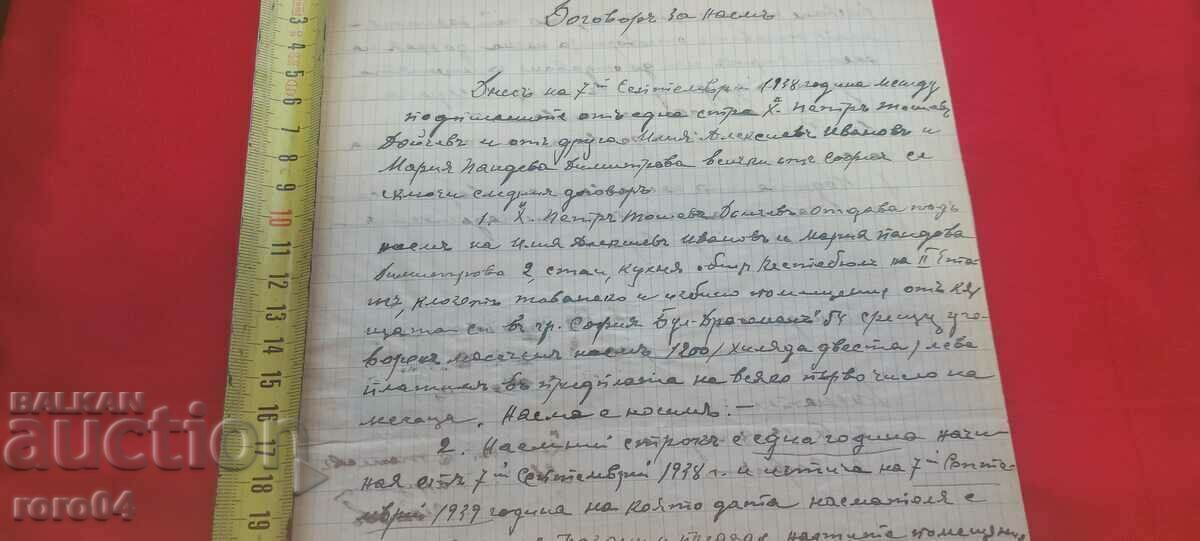 Договоръ за наемъ
Днесъ на 7ий Септемврий 1938 година между
подписаните отъ една стра Х. Петръ Тошевъ
Дойчевъ и отъ друга Илия Алексиевъ Ивановъ и
Мария Пандева Димитрова всички отъ София се
сключи следния договоръ
1. Х. Петръ Тошевъ Дойчевъ отдава подъ
наемъ на Илия Алексиевъ Ивановъ и Мария Пандева
Димитрова 2 стаи, кухня общъ Вестебюлъ на II Ета
жъ, клозетъ таванско и избено помещение отъ къ
щата си въ гр. София Бул. Драгоманъ 54 срещу уго-
воренъ месеченъ наемъ 1200/хиляда двеста/ лева
платимъ въ предплата на всяко първо число на
месеца. Наема е носимъ: —
2. Наемний срокъ е една година начи-
ная отъ 7ий Септемврий 1938 г. и истича на 7ий Септе-
мврий 1939 година на която дата наемателя е
наетите помещения
BALKAN
auction
roro04
3 4 5 6 7 8 9 10 11 12 13 14 15 16 17 18 19